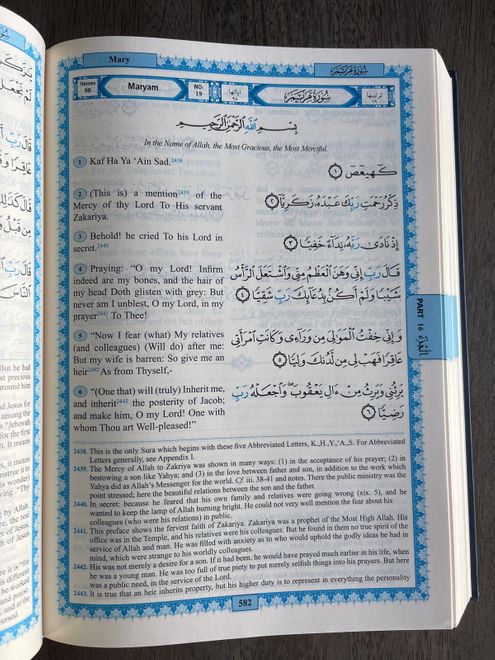 Mary
سُورَةُ مَرْيَم
Verses 98
Maryam
NO. 19
آياتها ٩٨
سُورَةُ مَرْيَم
ترتيبها ١٩
بِسْمِ اللَّهِ الرَّحْمَٰنِ الرَّحِيمِ
In the Name of Allah, the Most Gracious, the Most Merciful.
1 Kaf Ha Ya ‘Ain Sad.2438
كٓهيعٓصٓ ١
2 (This is) a mention2439 of the
Mercy of thy Lord To His servant
Zakariya.
ذِكْرُ رَحْمَتِ رَبِّكَ عَبْدَهُۥ زَكَرِيَّا ٢
3 Behold! he cried To his Lord in
secret.2440
إِذْ نَادَىٰ رَبَّهُۥ نِدَآءً خَفِيًّا ٣
4 Praying: “O my Lord! Infirm
indeed are my bones, and the hair of
my head Doth glisten with grey: But
never am I unblest, O my Lord, in my
prayer2441 To Thee!
قَالَ رَبِّ إِنِّى وَهَنَ ٱلْعَظْمُ مِنِّى وَٱشْتَعَلَ ٱلرَّأْسُ
شَيْبًا وَلَمْ أَكُنۢ بِدُعَآئِكَ رَبِّ شَقِيًّا ٤
5 “Now I fear (what) My relatives
(and colleagues) (Will do) after me:
But my wife is barren: So give me an
heir2442 As from Thyself,-
وَإِنِّى خِفْتُ ٱلْمَوَٰلِىَ مِن وَرَآءِى وَكَانَتِ ٱمْرَأَتِى
عَاقِرًا فَهَبْ لِى مِن لَّدُنكَ وَلِيًّا ٥
6 “(One that) will (truly) Inherit me,
and inherit2443 the posterity of Jacob;
and make him, O my Lord! One with
whom Thou art Well-pleased!”
يَرِثُنِى وَيَرِثُ مِنْ ءَالِ يَعْقُوبَ ۖ وَٱجْعَلْهُ رَبِّ
رَضِيًّا ٦
PART 16
2438. This is the only Sura which begins with these five Abbreviated Letters, K.,H.,Y.,‘A.,S. For Abbreviated
Letters generally, see Appendix I.
2439. The Mercy of Allah to Zakriya was shown in many ways: (1) in the acceptance of his prayer; (2) in
bestowing a son like Yahya; and (3) in the love between father and son, in addition to the work which
Yahya did as Allah’s Messenger for the world. Cf iii. 38-41 and notes. There the public ministry was the
point stressed; here the beautiful relations between the son and the father.
2440. In secret: because he feared that his own family and relatives were going wrong (xix. 5), and he
wanted to keep the lamp of Allah burning bright. He could not very well mention the fear about his
colleagues (who were his relations) in public.
2441. This preface shows the fervent faith of Zakariya. Zakariya was a prophet of the Most High Allah. His
office was in the Temple, and his relatives were his colleagues. But he found in them no true spirit of the
service of Allah and man. He was filled with anxiety as to who would uphold the godly ideas he had in
mind, which were strange to his worldly colleagues.
2442. His was not merely a desire for a son. If it had been, he would have prayed much earlier in his life, when
he was a young man. He was too full of true piety to put merely selfish things into his prayers. But here
was a public need, in the service of the Lord.
2443. It is true that an heir inherits property, but his higher duty is to represent in everything the personality
582